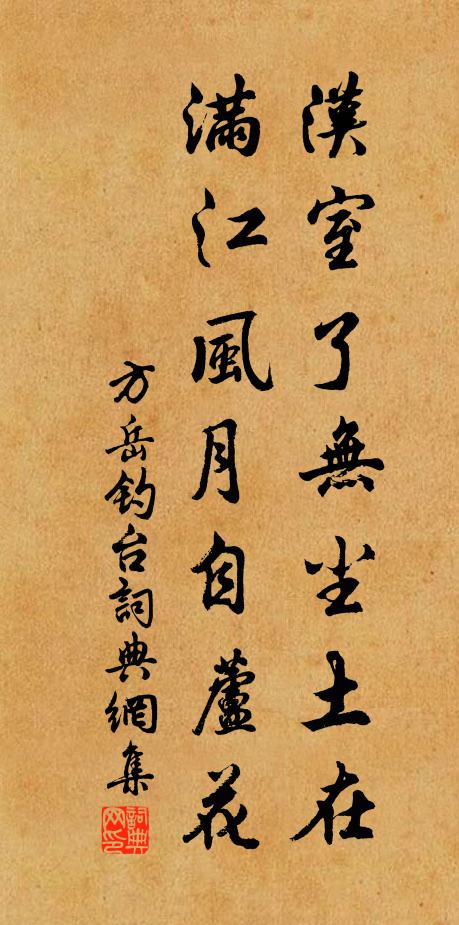 漢室了無尘土在
滿江風月自蘆花
方岳钓台詞典網集
詞典
网印